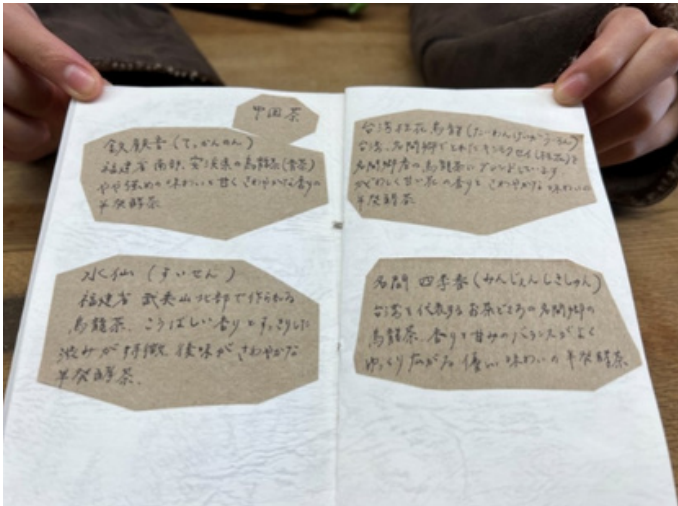 中国茶
鉄観音(てっかんのん)
福建省南部、安渓県の烏龍茶(青茶)
やや強めの味わいと甘くさわやかな香りの
半発酵茶
水仙(すいせん)
福建省 武夷山北部で作られる
烏龍茶、こうばしい香りとすっきりした
渋みが特徴。後味がさわやかな
半発酵茶。
台湾桂花烏龍(たいわんけいかうーろん)
台湾、名間郷でとれたキンモクセイ(桂花)を
名間郷産の烏龍茶にブレンドしています
かぐわしく甘い花の香りとさわやかな味わいの
半発酵茶
名間 四季春(みんじぇんしきしゅん)
台湾を代表するお茶どころの名間郷の
烏龍茶。香りと甘みのバランスがよく
ゆっくりながな優しい味わいの半発酵茶